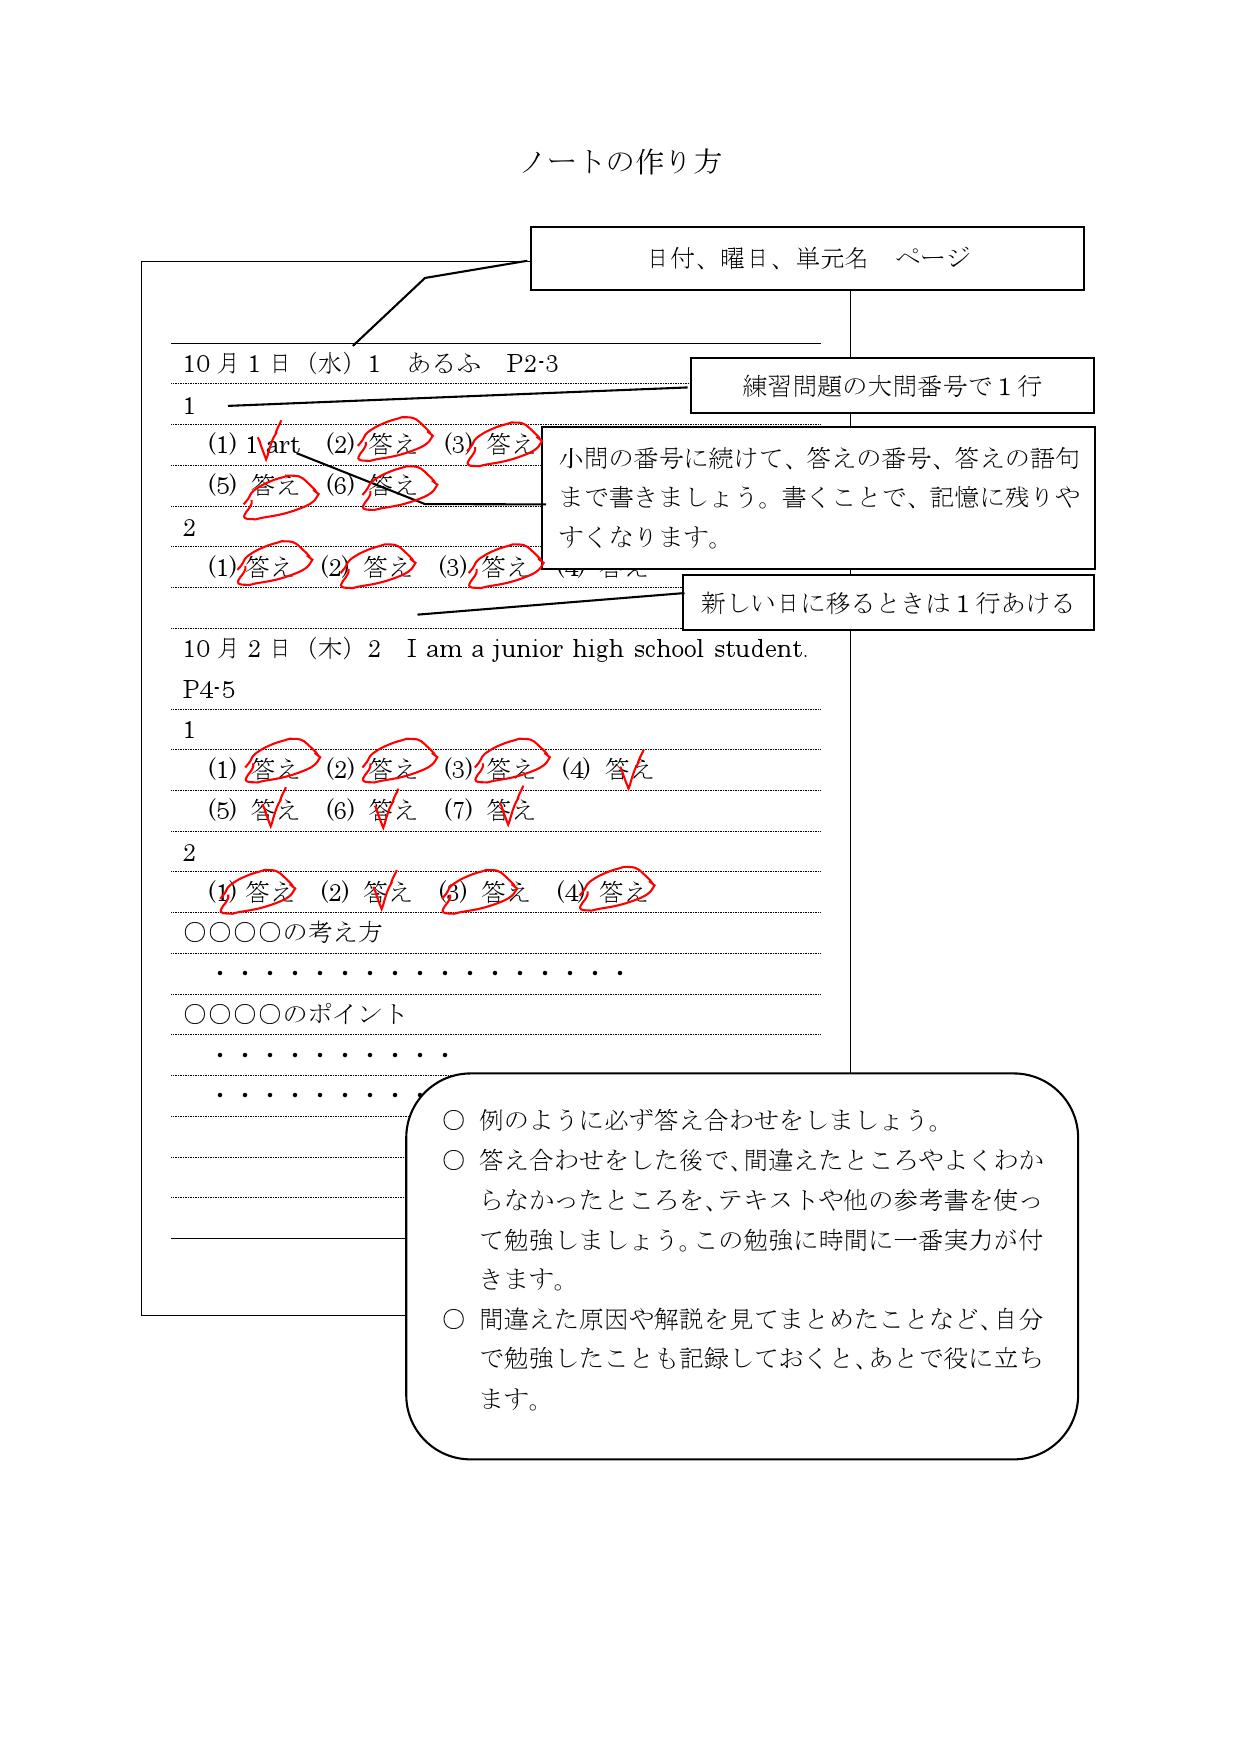 ノートの作り方
日付、曜日、単元名　ページ
10 月 1 日（水）1　あるふ　P2-3
練習問題の大問番号で１行
1
(1) 1 art　(2) 答え　(3) 答え
小問の番号に続けて、答えの番号、答えの語句
まで書きましょう。書くことで、記憶に残りや
すくなります。
(5) 答え　(6) 答え
2
(1) 答え　(2) 答え　(3) 答え　(4) 答え
新しい日に移るときは１行あける
10 月 2 日（木）2　I am a junior high school student.
P4-5
1
(1) 答え　(2) 答え　(3) 答え　(4) 答え
(5) 答え　(6) 答え　(7) 答え
2
(1) 答え　(2) 答え　(3) 答え　(4) 答え
〇〇〇〇の考え方
・・・・・・・・・・・・・・・・・
〇〇〇〇のポイント
・・・・・・・・・・
・・・・・・・・・
〇 例のように必ず答え合わせをしましょう。
〇 答え合わせをした後で、間違えたところやよくわか
らなかったところを、テキストや他の参考書を使っ
て勉強しましょう。この勉強に時間に一番実力が付
きます。
〇 間違えた原因や解説を見てまとめたことなど、自分
で勉強したことも記録しておくと、あとで役に立ち
ます。